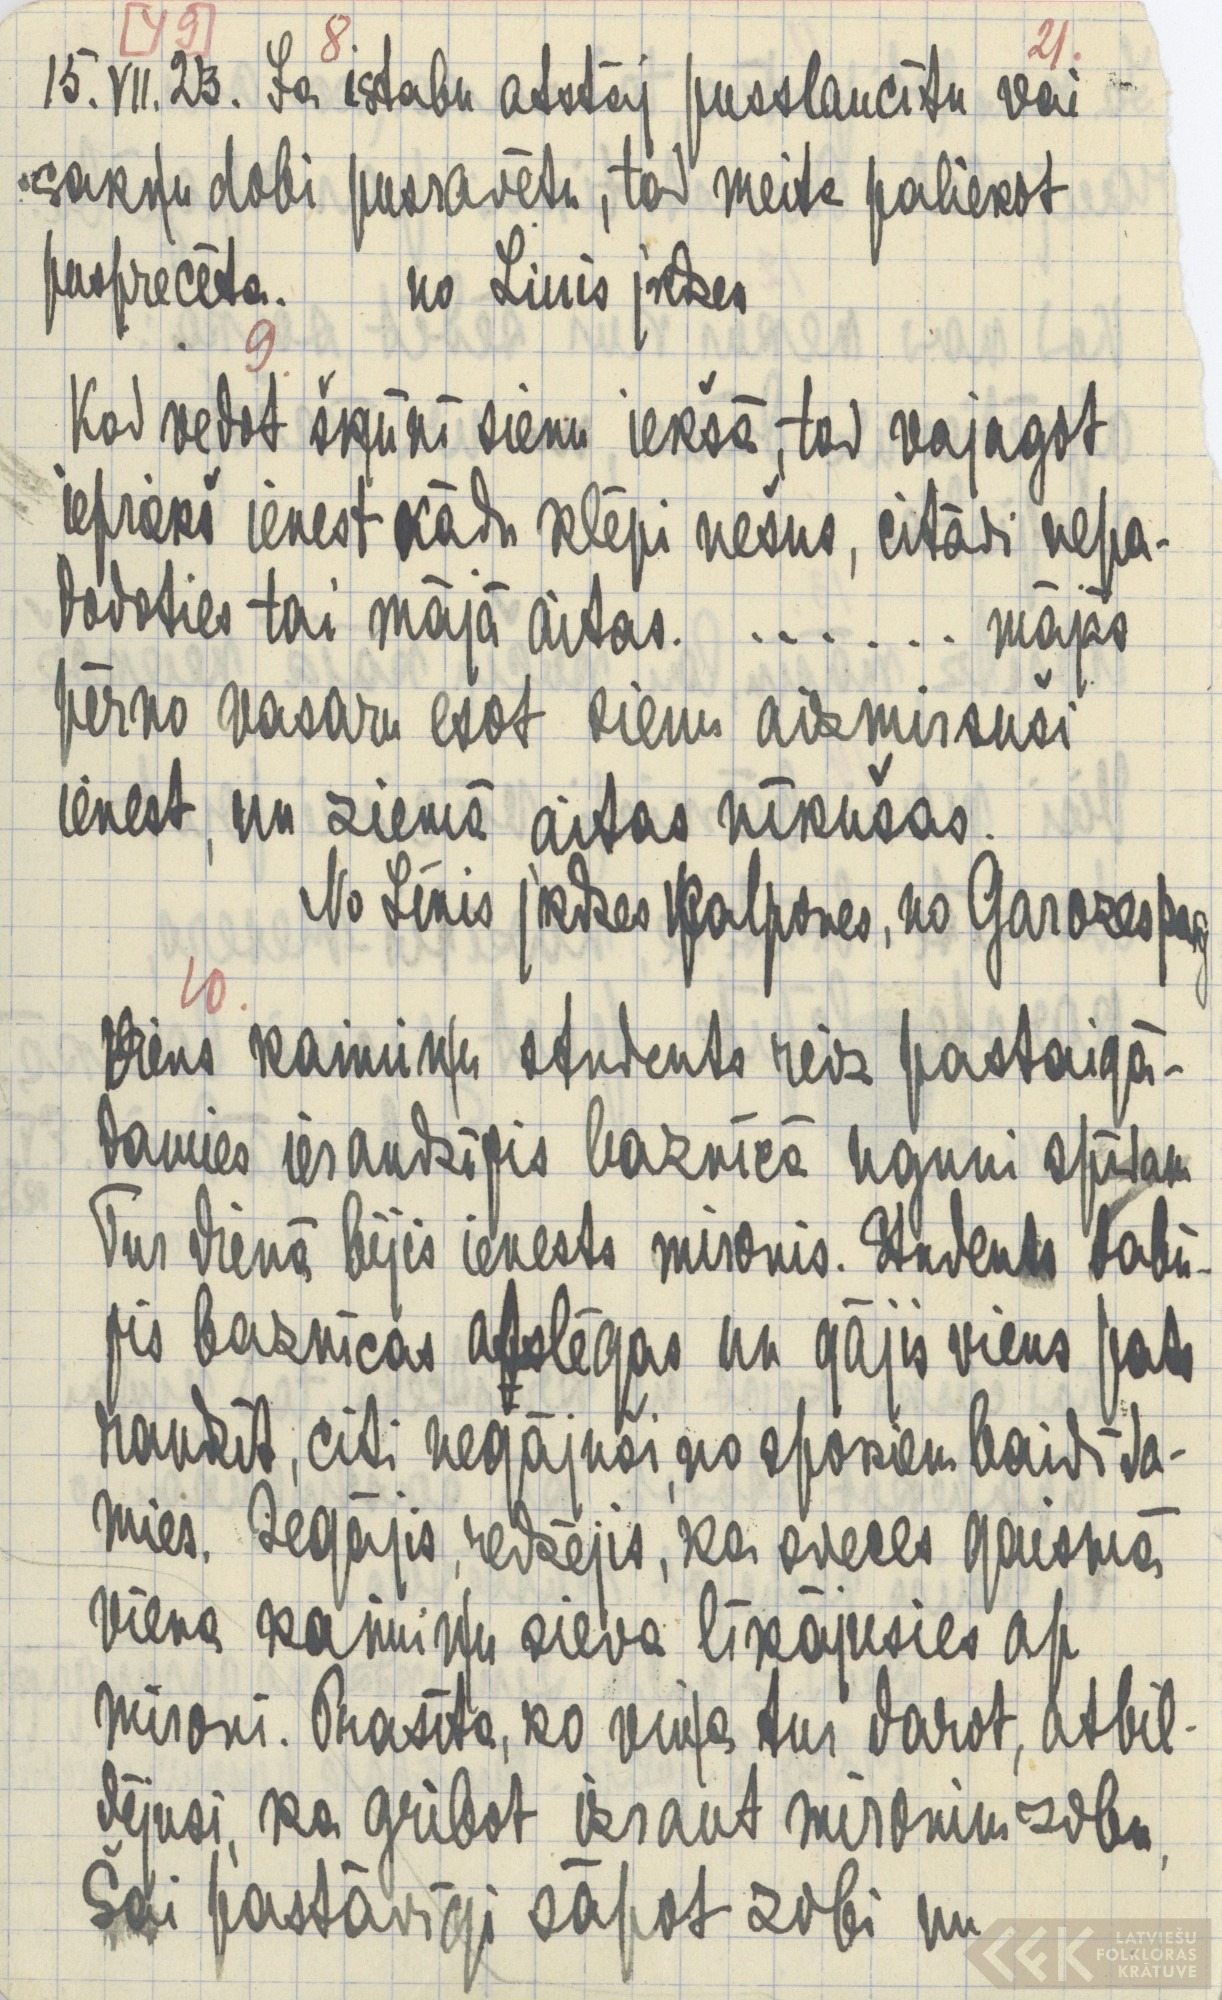 [49] 8 21.
15. VII. 23. Ja istabu atstāj pusslaucītu vai
sakņu dobi pusravētu, tad meita paliekot
pusprecēta. no Līnis jkdzes
9.
Kad vedot šķūnī sienu iekšā, tad vajagot
iepriekš ienest kādu klēpi nešus, citādi nepa-
dodoties tai mājā aitas. . . . . . . . mājās
pērno vasaru esot sienu aizmirsuši
ienest, un ziemā aitas nīkušas.
No Līnis jkdzes kalpones, no Garozes pag
10.
Viens kaimiņu students reiz pastaigā-
damies ieraudzījis baznīcā uguni spīdam
Tur dienā bijis ienests mironis. Students dabū-
jis baznīcas atslēgas un gājis viens pats
raudzīt, citi negājuši, no spokiem baidīda-
mies. Iegājis, redzējis, ka sveces gaismā
viena kaimiņu sieva līkājusies ap
mironi. Prasīta, ko viņa tur darot, atbil-
dējusi, ka gribot izraut mironim zobu,
Šai pastāvīgi sāpot zobi un
LATVIEŠU
FOLKLORAS
KRĀTUVE